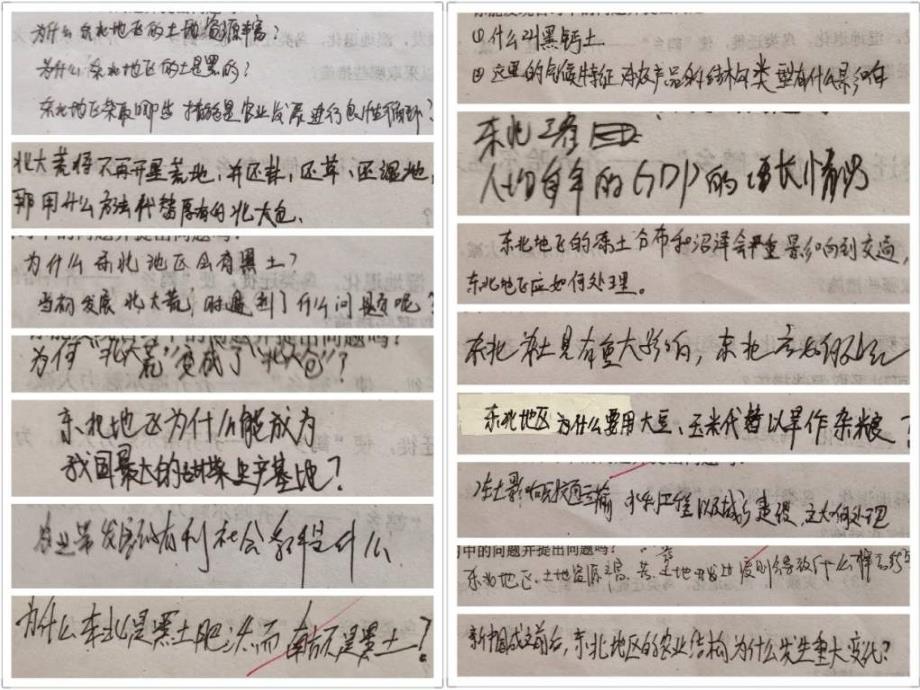 为什么东北地区的土地资源丰富?
为什么东北地区的土是黑的?
东北地区采取哪些措施是农业发展进行良性循环?
北大荒将不再开垦荒地,并还林,还草、还湿地,
那用什么方法代替原有的北大仓、
为什么东北地区会有黑土?
当初发展北大荒,时遇到了什么问题呢?
为何“北大荒”变成了“北大仓”?
东北地区为什么能成为
我国最大的甜菜生产基地?
农业带发展的有利社会条件是什么
为什么东北是黑土肥沃而南方是 土?
①什么叫黑钙土.
④这里的气候特征对农产品的结构类型有什么影响
东北三省
人均每年的(GDP)的增长情况
东北地区的冻土分布和沼泽会严重影响到交通,
东北地区应如何处理。
东北冻土具有重大影响,东北应如何处理
东北地区为什么要用大豆、玉米代替以旱作杂粮?
冻土影响到交通运输 水利工程以及城乡建设 应如何处理
中的问题并提出问题吗?
东北地区、土地资源丰富、若土地开发过度则会导致什么样
新中国成立前后,东北地区的农业结构为什么发生重大变化?